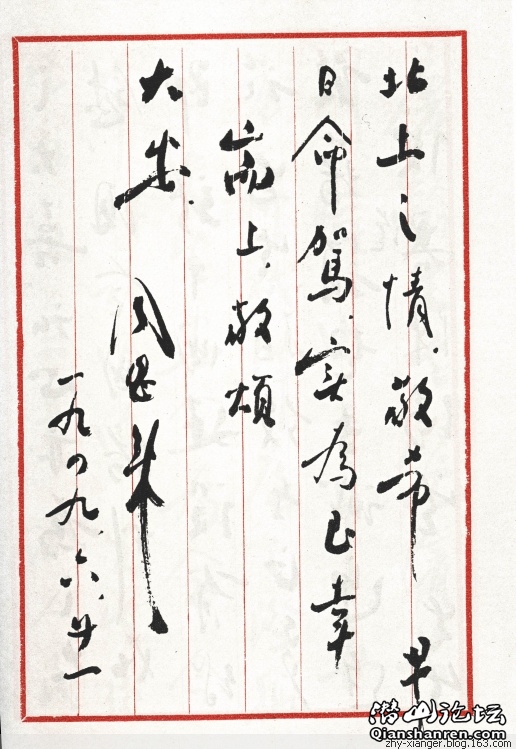 北上之情.敬希 早
日命駕.实为至幸
耑上.敬颂
大安.
周恩来
一九四九.六.廿一
潜山论坛
Qianshanren.com
zhy-xianger.blog.163.com